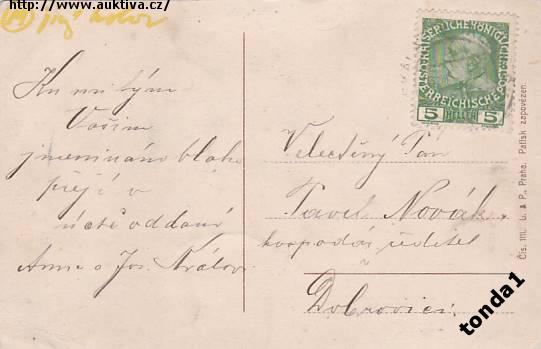 http://www.auktiva.cz/
Ku milým
Vašim
jmeninám blaho
přejí v
úctě oddaní
Anna a Jos. Královi
KAISERLICHE KÖNIGLICHE
ÖSTERREICHISCHE POST
5 HELLER 5
Velectěný Pán
Pavel Novák
hospodář. ředitel
v
Dobrovici.
Čís. 111. U. & P., Praha. Patisk zapovězen.
tonda1